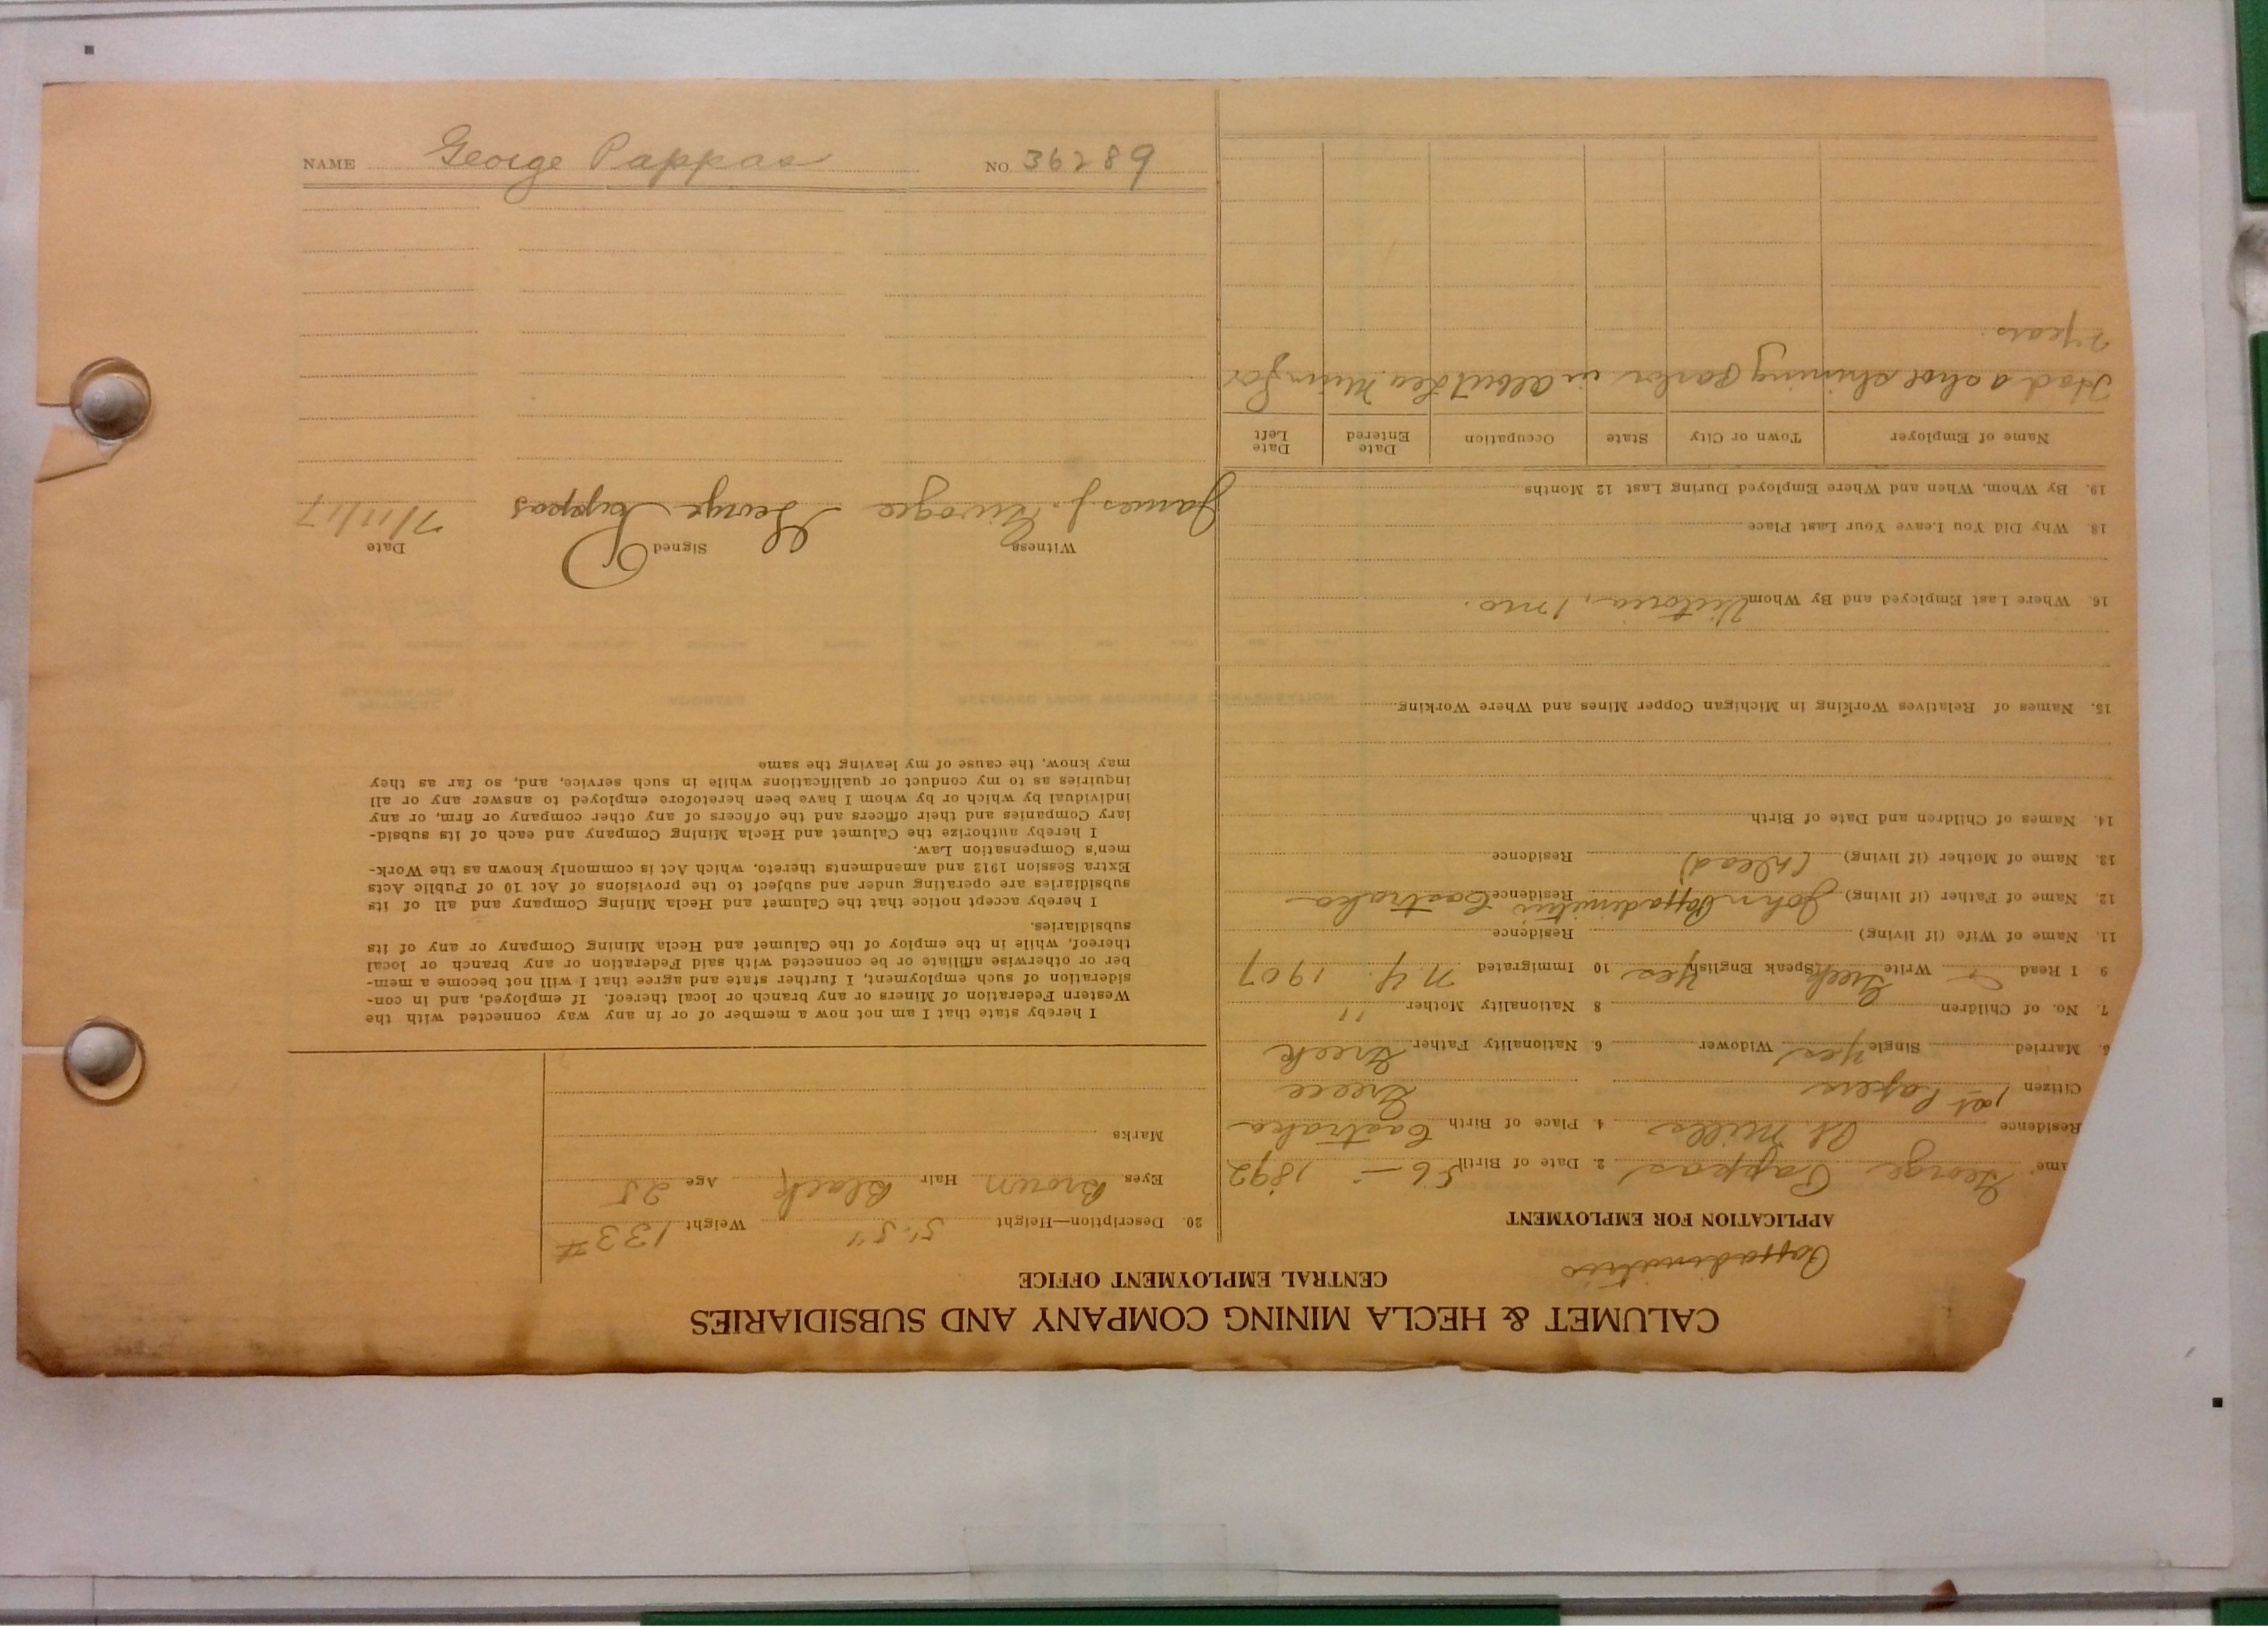 NAME George Pappas NO. 36289
CALUMET & HECLA MINING COMPANY AND SUBSIDIARIES
CENTRAL EMPLOYMENT OFFICE
Pappadimitrios
APPLICATION FOR EMPLOYMENT
ame George Pappas 2. Date of Birth 5 6 – 1892
Residence Ol. Mills 4. Place of Birth Castraka
Citizen 1st Papers Greece
5. Married Single Yes Widower 6. Nationality Father Greek
7. No. of Children 8 Nationality Mother "
9 I Read Write Greek Speak English Yes 10 Immigrated N.Y. 1907
11. Name of Wife (if living) Residence
12. Name of Father (if living) John Pappadimitrios Residence Castraka
13. Name of Mother (if living) (Dead) Residence
14. Names of Children and Date of Birth
15. Names of Relatives Working in Michigan Copper Mines and Where Working
16. Where Last Employed and By Whom Victoria, 1 mo.
18. Why Did You Leave Your Last Place
19. By Whom, When and Where Employed During Last 12 Months
Name of Employer Town or City State Occupation Date Entered Date Left
Had a shoe shining Parlor in Albert Lea Minn for
2 years.
20. Description—Height 5' 5" Weight 133 #
Eyes Brown Hair Black Age 25
Marks
I hereby state that I am not now a member of or in any way connected with the
Western Federation of Miners or any branch or local thereof. If employed, and in con-
sideration of such employment, I further state and agree that I will not become a mem-
ber or otherwise affiliate or be connected with said Federation or any branch or local
thereof, while in the employ of the Calumet and Hecla Mining Company or any of its
subsidiaries.
I hereby accept notice that the Calumet and Hecla Mining Company and all of its
subsidiaries are operating under and subject to the provisions of Act 10 of Public Acts
Extra Session 1912 and amendments thereto, which Act is commonly known as the Work-
men's Compensation Law.
I hereby authorize the Calumet and Hecla Mining Company and each of its subsid-
iary Companies and their officers and the officers of any other company or firm, or any
individual by which or by whom I have been heretofore employed to answer any or all
inquiries as to my conduct or qualifications while in such service, and, so far as they
may know, the cause of my leaving the same
Witness Signed Date
James J. George Pappas 7/11/17